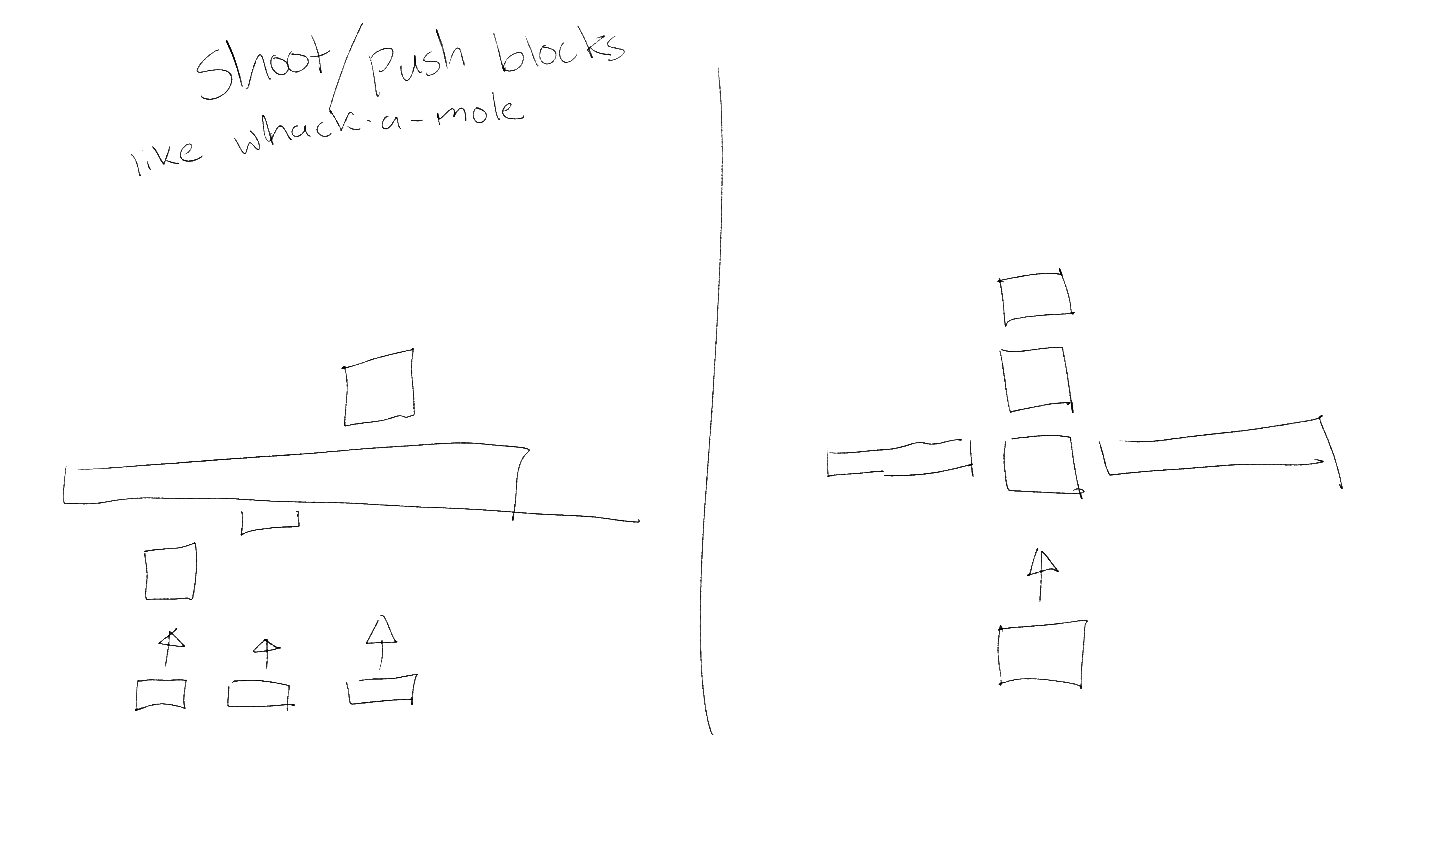 Shoot/push blocks
like whack-a-mole